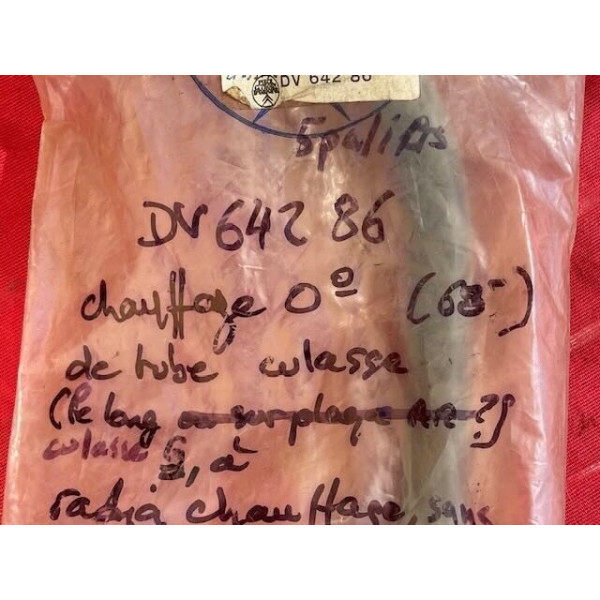 DV 642 86
DV 642 86
chauffage 0º (68-)
de tube culasse
(le long
culasse S, à
radia chauffage, sans